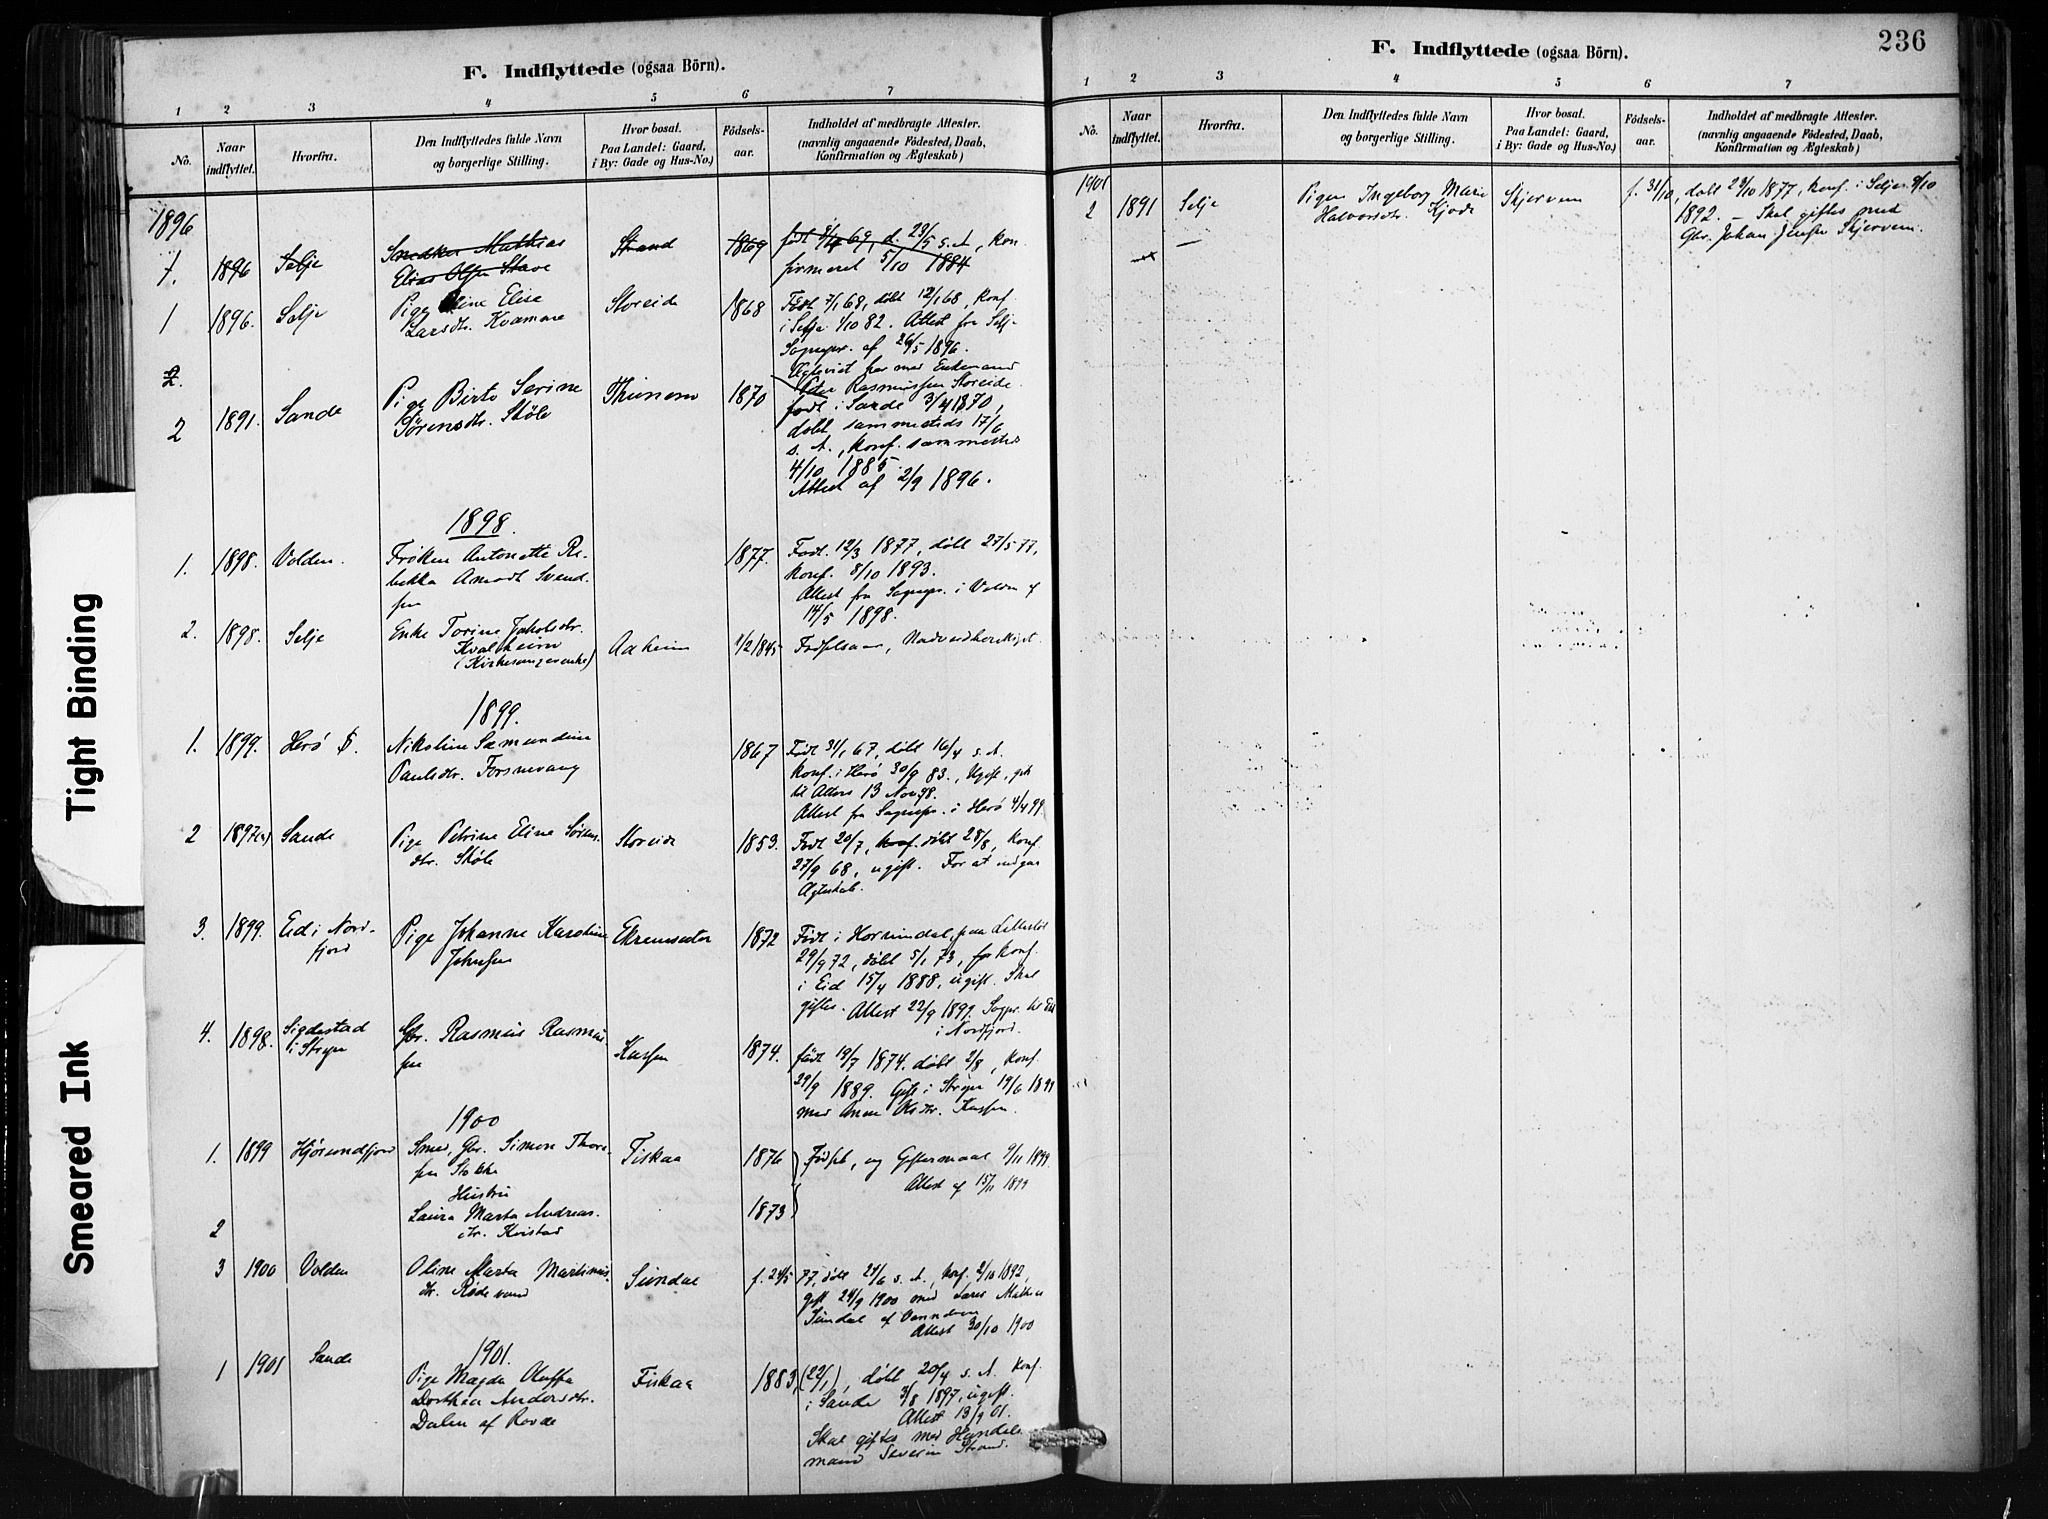 Tight Binding
Smeared Ink
F. Indflyttede (ogsaa Börn).
1 2 3 4 5 6 7
No.
Naar indflyttet.
Hvorfra.
Den Indflyttedes fulde Navn
og borgerlige Stilling.
Hvor bosat.
Paa Landet: Gaard,
i By: Gade og Hus-No.)
Fødsels-
aar.
Indholdet af medbragte Attester.
(navnlig angaaende Födested, Daab,
Konfirmation og Ægteskab)
1896
1. 1896 Selje Snedker Mathias Strand 1869 født 8/4 69, d. 23/5 s. A, kon
Elias Olsen Stave firmeret 5/10 1884
1 1896. Selje Pige Oline Elise Storeide 1868 Født 7/1 68, døbt 12/1 68, Konf.
Larsdtr. Kvamme i Selje 1/10 82. Attest fra Selje
Sognepr. af 26/5 1896.
2. med Enkemand
Peter Rasmussen Storeide
2 1891. Sande Pige Birte Serine 1870 født i Sande 3/4 1870,
Sørensdtr. Sköle døbt sammesteds 17/6
s. A., Konf. sammesteds
4/10 1885.
Attest af 2/9 1896.
1898.
1. 1898. Volden. Frøken Antonette Re- 1877. Født 12/3 1877, døbt 27/5 77,
bekka Amodt Svend- Konf. 8/10 1893.
sen Attest fra Sognepr. i Volden af
14/5 1898.
2. 1898. Selje Enke Torine Jakobsdtr. Aaheim 1/2 1845 Fødselsaar, Nadverdberettiget.
Kvalheim
(Kirkesangerenke)
1899.
1. 1899. Herö Nikoline Samundine 1867 Født 31/1 67, døbt 16/4 s. A.
Paulsdtr. Konf. i Herö 30/9 83., Ugift, gik
til Alters 13 Nov 98.
Attest fra Sognepr. i Herö 4/4 99
2 1897 Sande Pige Petrine Eline Sørens- Storeide 1853. Født 20/7, døbt 28/8, Konf.
dtr. Sköle 27/9 68, ugift. For at indgaa
Ægteskab.
3. 1899. Eid i Nord- Pige Johanne Karoline Ekremsæter 1872 Født i Hornindal,
fjord Johnsen 29/9 72, døbt 5/1 73, Konf.
i Eid 15/4 1888, ugift. Skal
giftes. Attest 22/9 1897. Sogpr. til Eid
i Nordfjord.
4. 1898. i Stryn Gbr. Rasmus Rasmus- 1874. født 19/7 1874. døbt 2/8, Konf.
sen 29/9 1889. Gift i Stryn 19/6 1899
med Anne Olsdtr.
1900
1. 1899 Hjørundfjord Smed, Gbr. Simon Thore- Fiskaa 1876 Fødsel, og Giftermaal 9/11 1899.
sen Stokke Attest af 15/11 1899
Hustru
2 Laura Marta Andreas- 1873
dtr. Kvistad
3 1900 Volden Oline Marta Martinus- Sundal f. 24/5 77, døbt 24/6 s. A., Konf. 2/10 1892,
dtr. Rødevand gift 24/9 1900 med Lars Mathis
Sundal af Vanndven
Attest 30/10 1900
1901.
1 1901 Sande Pige Magda Oluffa Fiskaa 1883, (22/1), døbt 20/4 s. A. Konf.
Dorthea Andersdtr. i Sande 3/8 1897, ugift.
Dalen af Rovde Attest 13/9 01.
Skal giftes med Handels-
mand Severin Strand.
F. Indflyttede (ogsaa Börn).
236
1 2 3 4 5 6 7
No.
Naar
indflyttet.
Hvorfra.
Den Indflyttedes fulde Navn
og borgerlige Stilling.
Hvor bosat.
Paa Landet: Gaard,
i By: Gade og Hus-No.)
Födsels-
aar.
Indholdet af medbragte Attester.
(navnlig angaaende Födested, Daab,
Konfirmation og Ægteskab)
1901
2 1891 Selje Pigen Ingeborg Marie Skjerven f. 31/10, døbt 29/10 1877, Konf. i Selje 9/10
Halvorsdtr. Kjøde 1892. – Skal giftes med
Gbr. Johan Jensen Skjervem.